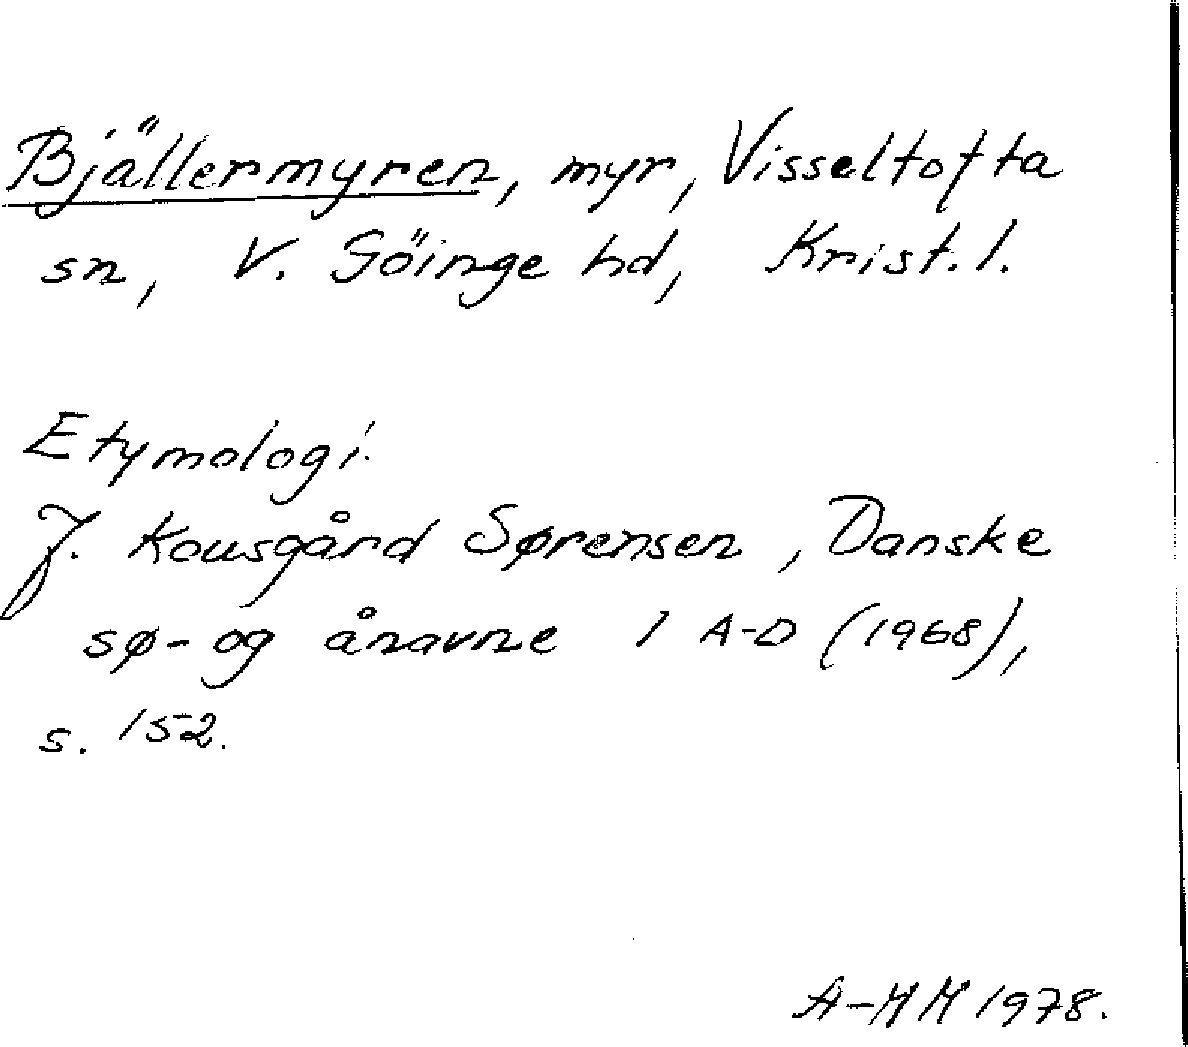 Bjällermyren, myr, Visseltofta
sn, V. Göinge hd, Krist. l.
Etymologi.
J. Kousgård Sørensen, Danske
sø- og ånavne 1 A-D (1968),
s. 152.
A-MM 1978.